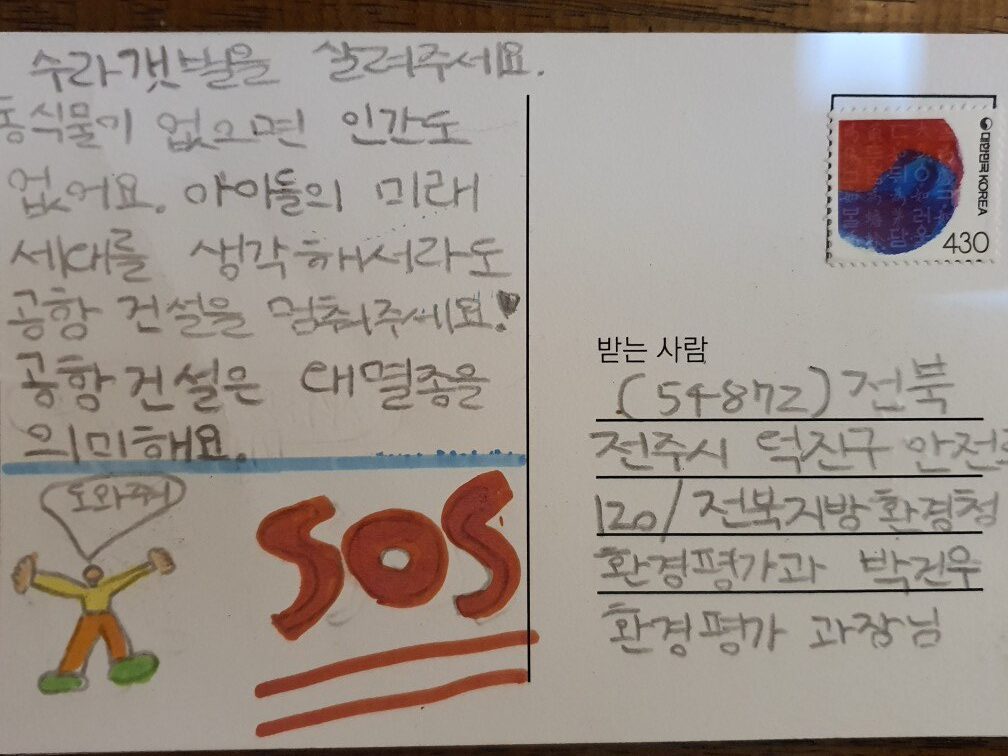 수라갯벌을 살려주세요.
동식물이 없으면 인간도
없어요. 아이들의 미래
세대를 생각해서라도
공항 건설을 멈춰주세요!
공항 건설은 대멸종을
의미해요.
도와줘
SOS
대한민국 KOREA
430
받는 사람
(54872) 전북
전주시 덕진구 안전로
120/전북지방환경청
환경평가과 박건우
환경평가 과장님